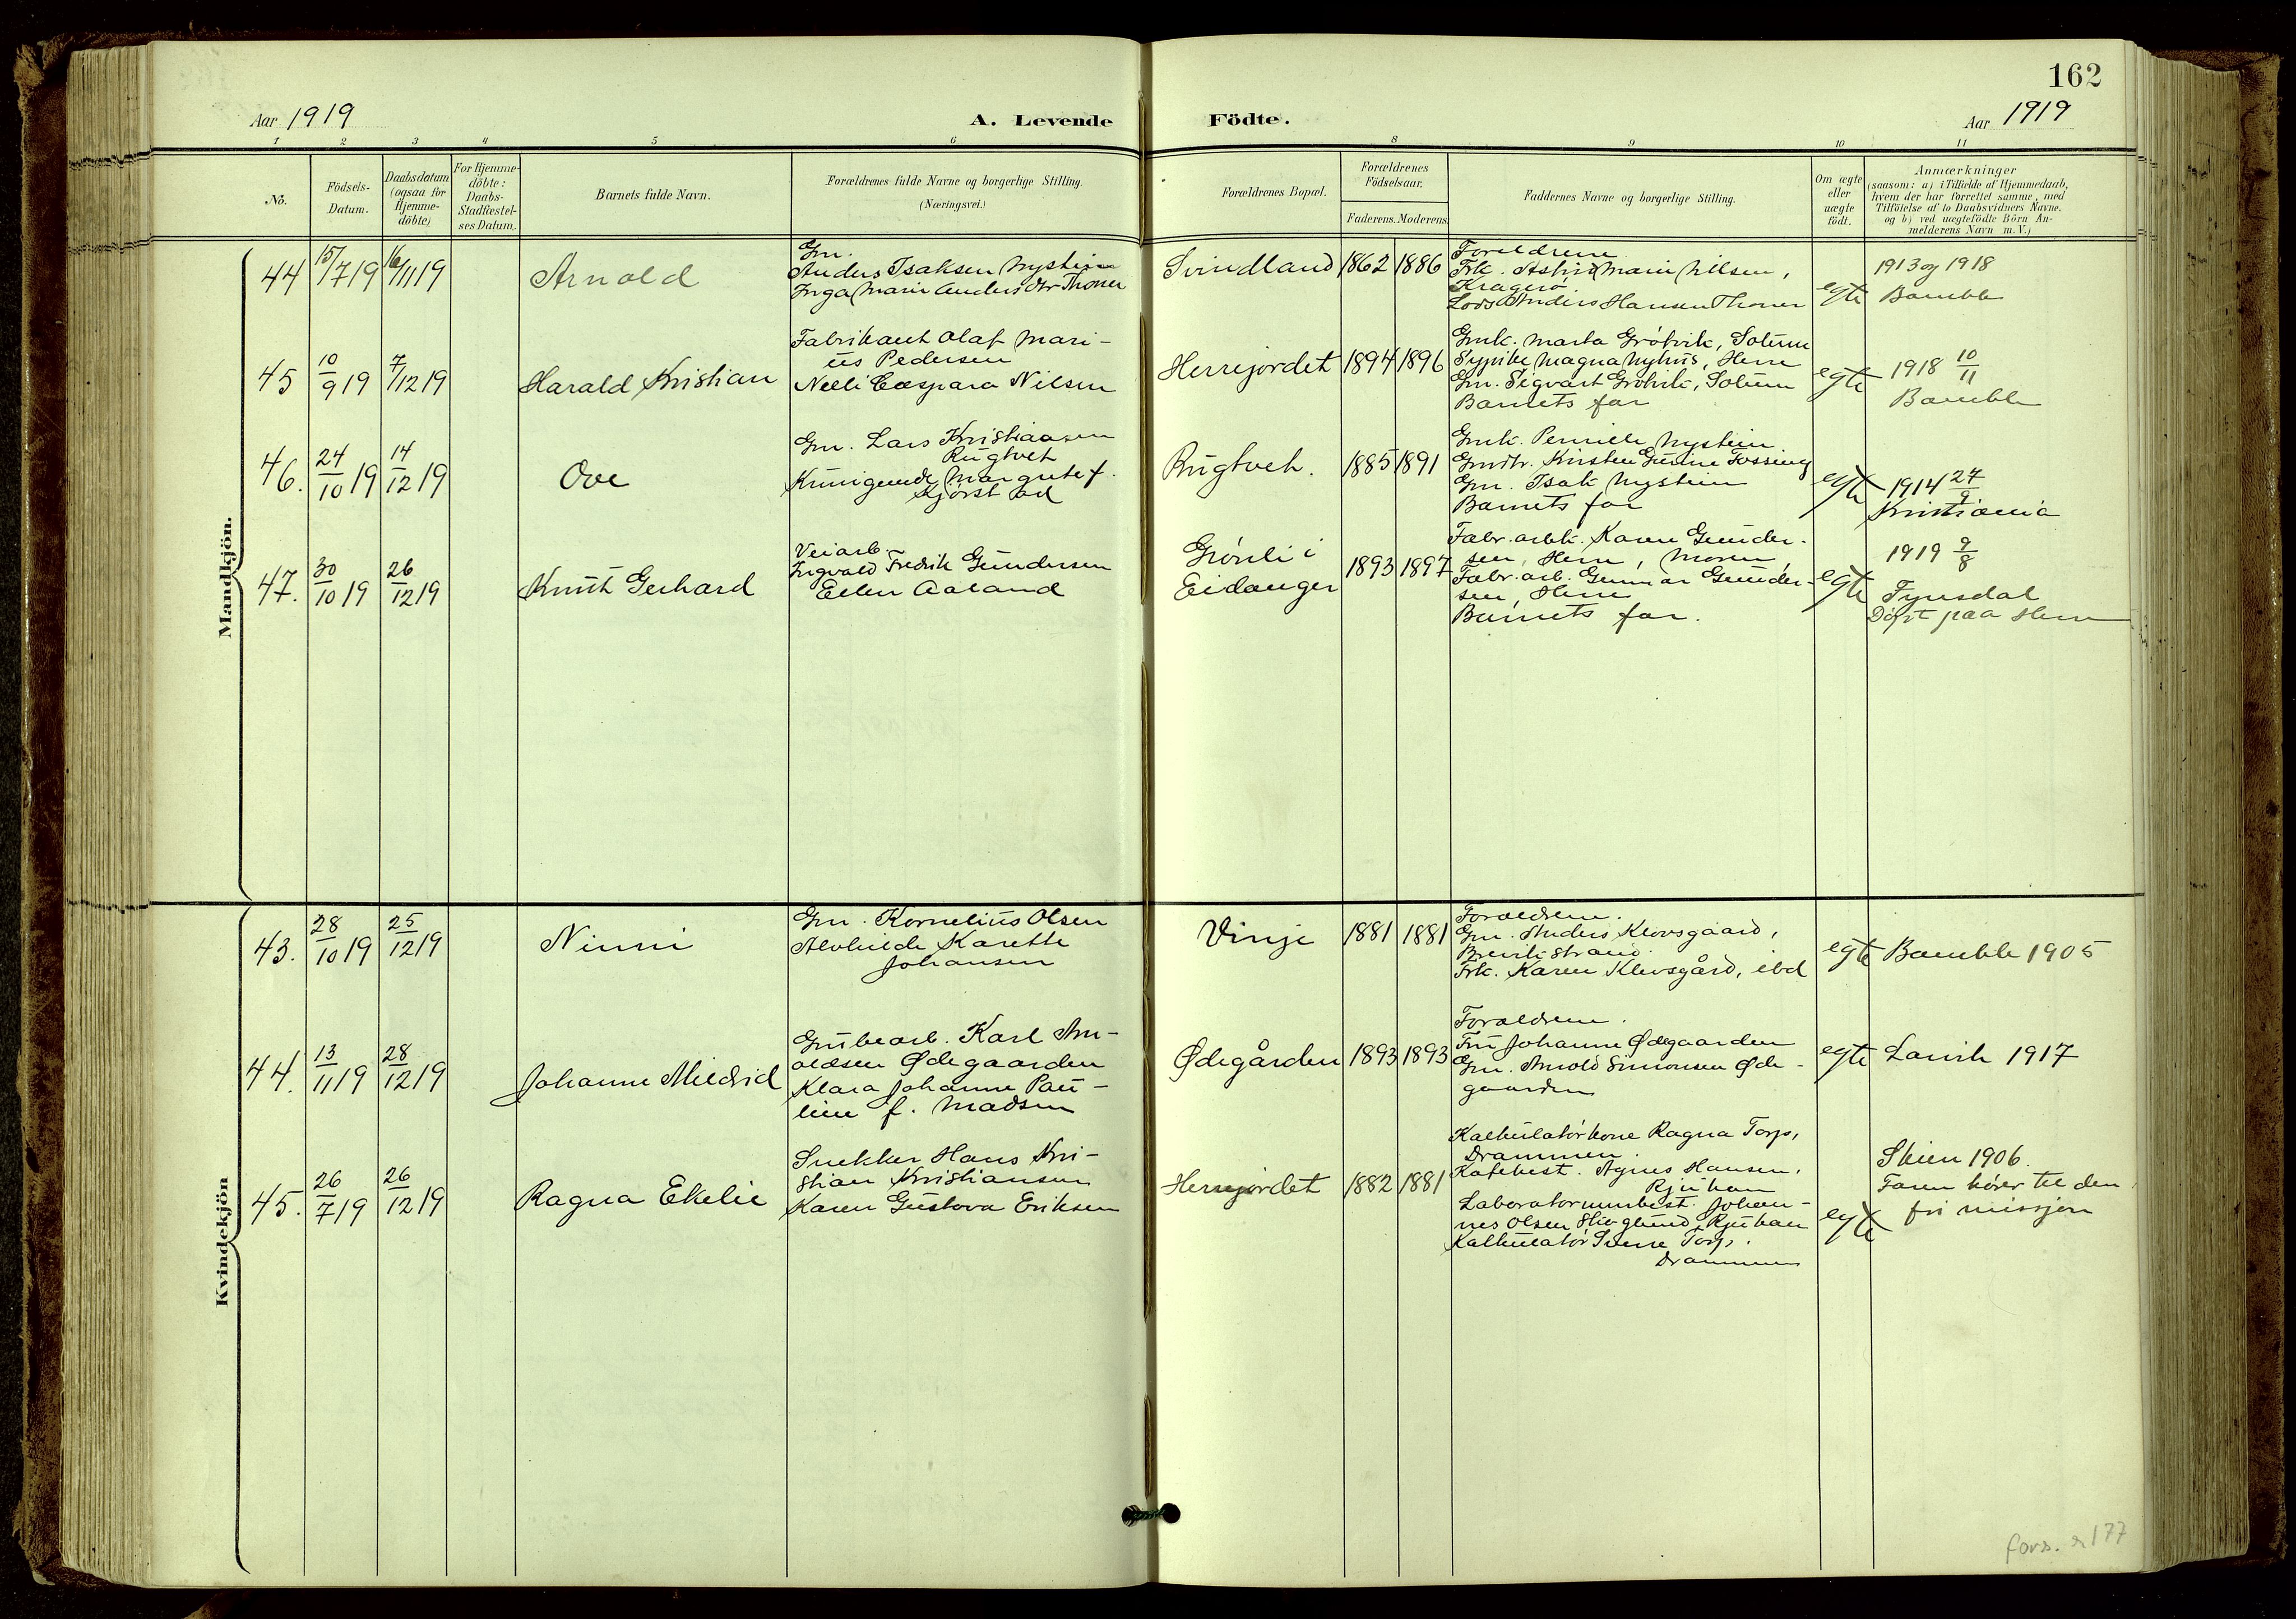 162
Aar 1919
A. Levende
Födte.
Aar 1919
1 2 3 4 5 6 8 9 10 11
No.
Födsels-
Datum.
Daabsdatum
(ogsaa for
Hjemme-
döbte)
For Hjemme-
döbte:
Daabs-
Stadfæstel-
ses Datum.
Barnets fulde Navn.
Forældrenes fulde Navne og borgerlige Stilling.
(Næringsvei.)
Forældrenes Bopæl.
Forældrenes
Födselsaar.
Faderens. Moderens.
Faddernes Navne og borgerlige Stilling.
Om ægte
eller
uægte
födt.
Anmærkninger
(saasom: a) i Tilfælde af Hjemmedaab,
hvem der har forrettet samme, med
Tilföielse af to Daabsvidners Navne.
og b) ved uægtefödte Börn An-
melderens Navn m. V.)
Mandkjön.
44
15/7 19
16/11 19
Arnold
Gm.
Anders Isaksen Nystein
Inga Marie Andersdtr Thoner
Svindland
1862
1886
Foreldrene
Frk. Astrid Marie Nilsen,
Kragerø
Lods Anders Hansen Thoner
egte
1913 og 1918
Bamble
45
10/9 19
7/12 19
Harald Kristian
Fabrikant Olaf Mari-
us Pedersen
Nelli Caspara Nilsen
Herrejordet
1894
1896
Gmk. Marta Grøtvik, Solum
Pypike Magna Nyhus, Herre
Gm. Sigvart Grøtvik, Solum
Barnets far
egte
1918 10/11
Bamble
46.
24/10 19
14/12 19
Ove
Gm. Lars Kristiansen
Rugtvet
Kunigunde Margrete f.
Kjørstad
Rugtvet.
1885
1891
Gmk. Pernille Nystein
Gmdtr. Kirsten Gurine Fossing
Gm. Isak Nystein
Barnets far
egte
1914 27/9
Kristiania
47.
30/10 19
26/12 19
Knut Gerhard
Veiarb.
Ingvald Fredrik Gundersen
Ellen Aaland
Grønli i
Eidanger
1893
1897
Fabr. arbk. Karen Gunder-
sen, Herre, Moren,
Fabr. arb. Gunnar Gunder-
sen, Herre
Barnets far.
egte
1919 9/8
Fyresdal
Døpt paa Herre
Kvindekjön
43.
28/10 19
25/12 19
Ninni
Gm. Kornelius Olsen
Alvhilde Karette
Johansen
Vinje
1881
1881
Foreldrene.
Gm. Anders Klovsgaard,
Brevikstrand.
Frk. Karen Klevsgård, ibd
egte
Bamble 1905
44.
13/11 19
28/12 19
Johanne Mildrid
Grubearb. Karl Arn-
oldsen Ødegaarden
Klara Johanne Pau-
line f. Madsen
Ødegården
1893
1893
Foreldrene.
Fru Johanne Ødegaarden
Gm. Arnold Simonsen Øde-
gaarden
egte
Larvik 1917
45.
26/7 19
26/12 19
Ragna Ekelie
Snekker Hans Kri-
stian Kristiansen
Karen Gustava Eriksen
Herrejordet
1882
1881
Kalkulatørkone Ragna Torp,
Drammen.
Kafebest. Agnes Hansen,
Rjukan
Laboratoriumbest. Johan-
nes Olsen Skoglund, Rjukan
Kalkulatør Sverre Torp,
Drammen
egte
Skien 1906.
Faren hører til den
fri missjon
fors. s 177